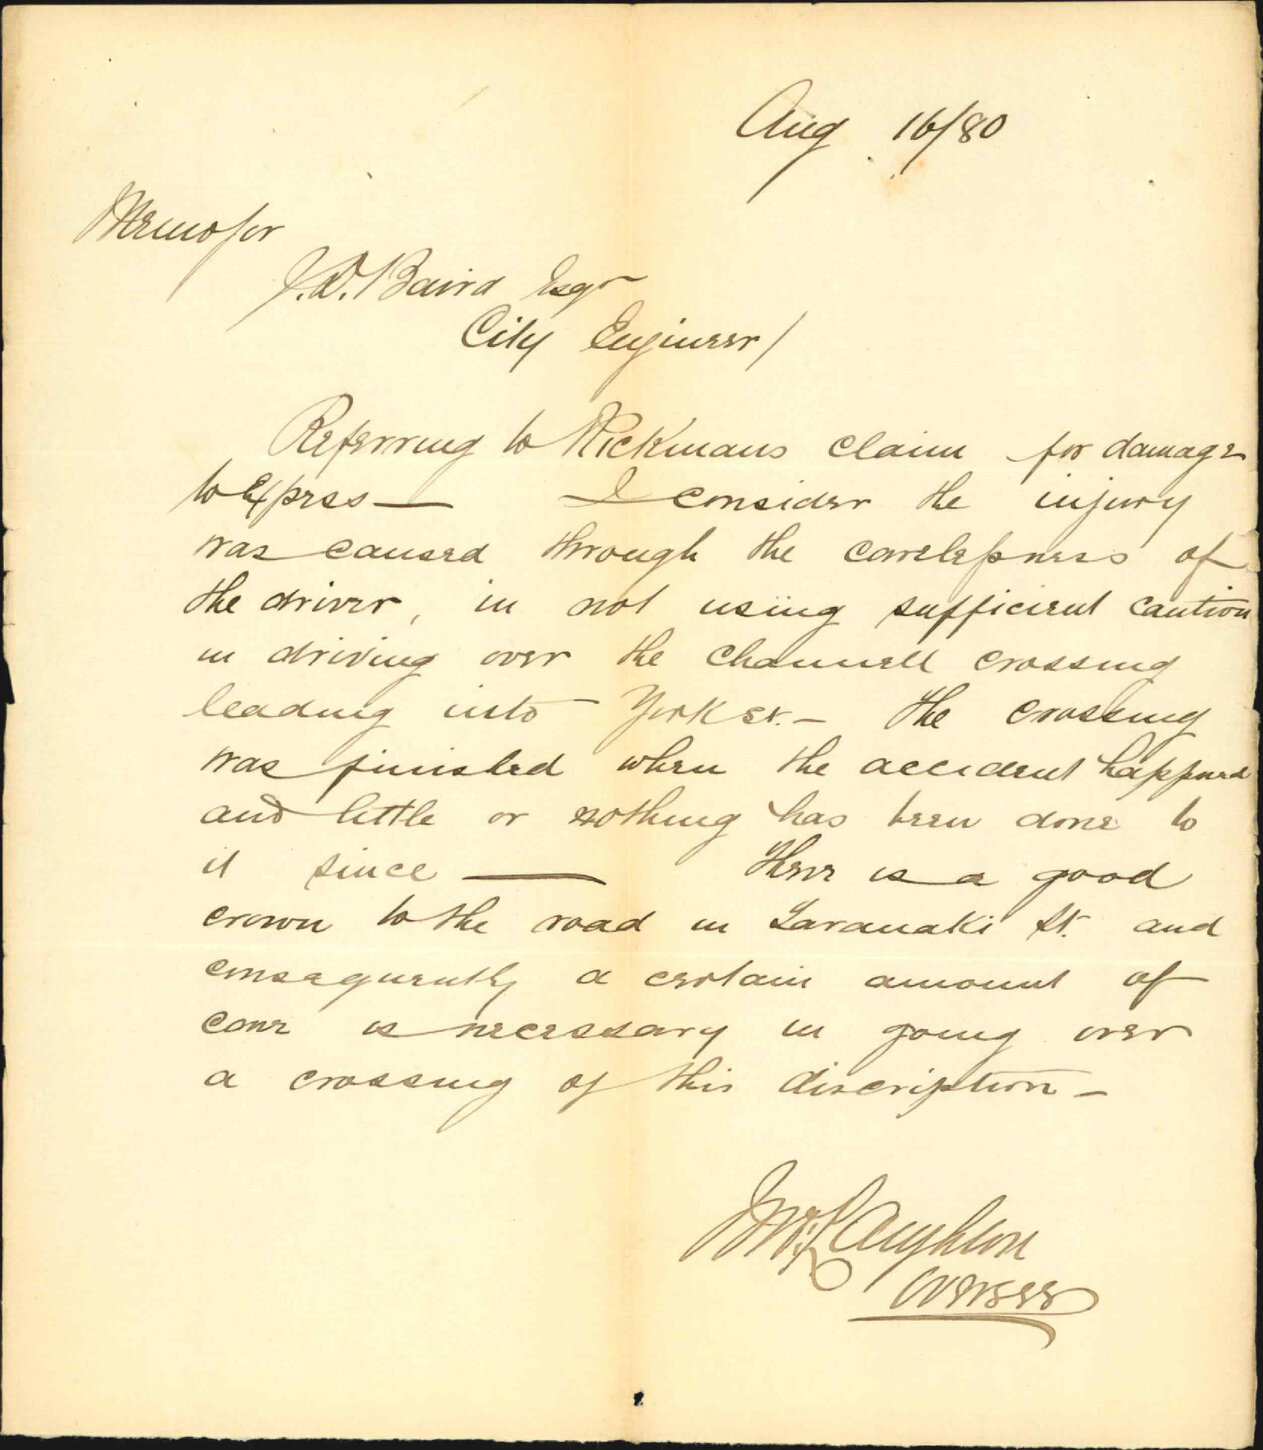 Aug 16/80
Memo for
J.D. Baird Esqr
City Engineer/
Referring to Rickmans claim for damage
to Express — I consider the injury
was caused through the carelessness of
the driver, in not using sufficient caution
in driving over the channell crossing
leading into York St. — The crossing
was finished when the accident happned
and little or nothing has been done to
it since — There is a good
crown to the road in Taranaki St. and
consequently a certain amount of
care is necessary in going over
a crossing of this discription —
McLaughlon
Overseer